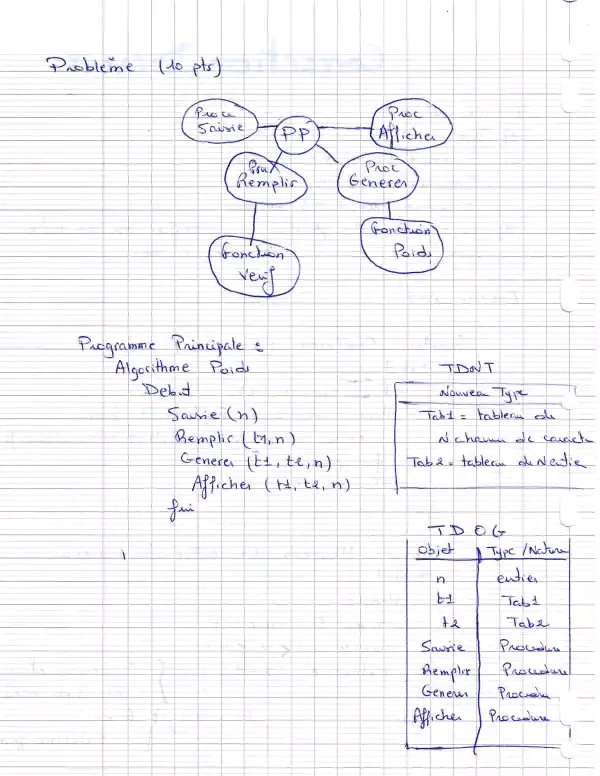 Problème (10 pts)
Proc
Saisie
PP
Proc
Afficher
Proc
Remplir
Proc
Generer
Fonction
Verif
Fonction
Poids
Programme Principale :
Algorithme Poids
Debut
Saisie (n)
Remplir (t1, n)
Generer (t1, t2, n)
Afficher (t1, t2, n)
fin
TDNT
Nouveau Type
Tab1 = tableau de
N chaines de caract
Tab2 = tableau de N entier
TDOG
Objet Type / Nature
n entier
t1 Tab1
t2 Tab2
Saisie Procedure
Remplir Procedure
Generer Procedure
Afficher Procedure